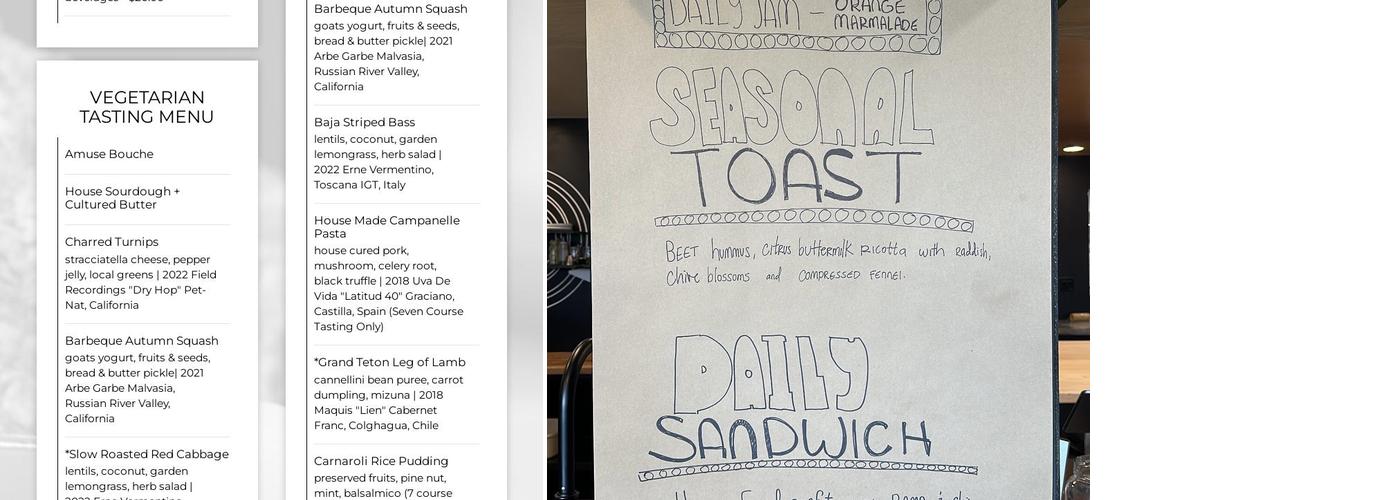 VEGETARIAN
TASTING MENU
Amuse Bouche
House Sourdough +
Cultured Butter
Charred Turnips
stracciatella cheese, pepper
jelly, local greens | 2022 Field
Recordings "Dry Hop" Pet-
Nat, California
Barbeque Autumn Squash
goats yogurt, fruits & seeds,
bread & butter pickle| 2021
Arbe Garbe Malvasia,
Russian River Valley,
California
*Slow Roasted Red Cabbage
lentils, coconut, garden
lemongrass, herb salad |
Barbeque Autumn Squash
goats yogurt, fruits & seeds,
bread & butter pickle| 2021
Arbe Garbe Malvasia,
Russian River Valley,
California
Baja Striped Bass
lentils, coconut, garden
lemongrass, herb salad |
2022 Erne Vermentino,
Toscana IGT, Italy
House Made Campanelle
Pasta
house cured pork,
mushroom, celery root,
black truffle | 2018 Uva De
Vida "Latitud 40" Graciano,
Castilla, Spain (Seven Course
Tasting Only)
*Grand Teton Leg of Lamb
cannellini bean puree, carrot
dumpling, mizuna | 2018
Maquis "Lien" Cabernet
Franc, Colghagua, Chile
Carnaroli Rice Pudding
preserved fruits, pine nut,
mint, balsalmico (7 course
DAILY JAM - ORANGE
MARMALADE
SEASONAL
TOAST
BEET hummus, citrus buttermilk Ricotta with raddish,
Chive blossoms and COMPRESSED FENNEL.
DAILY
SANDWICH